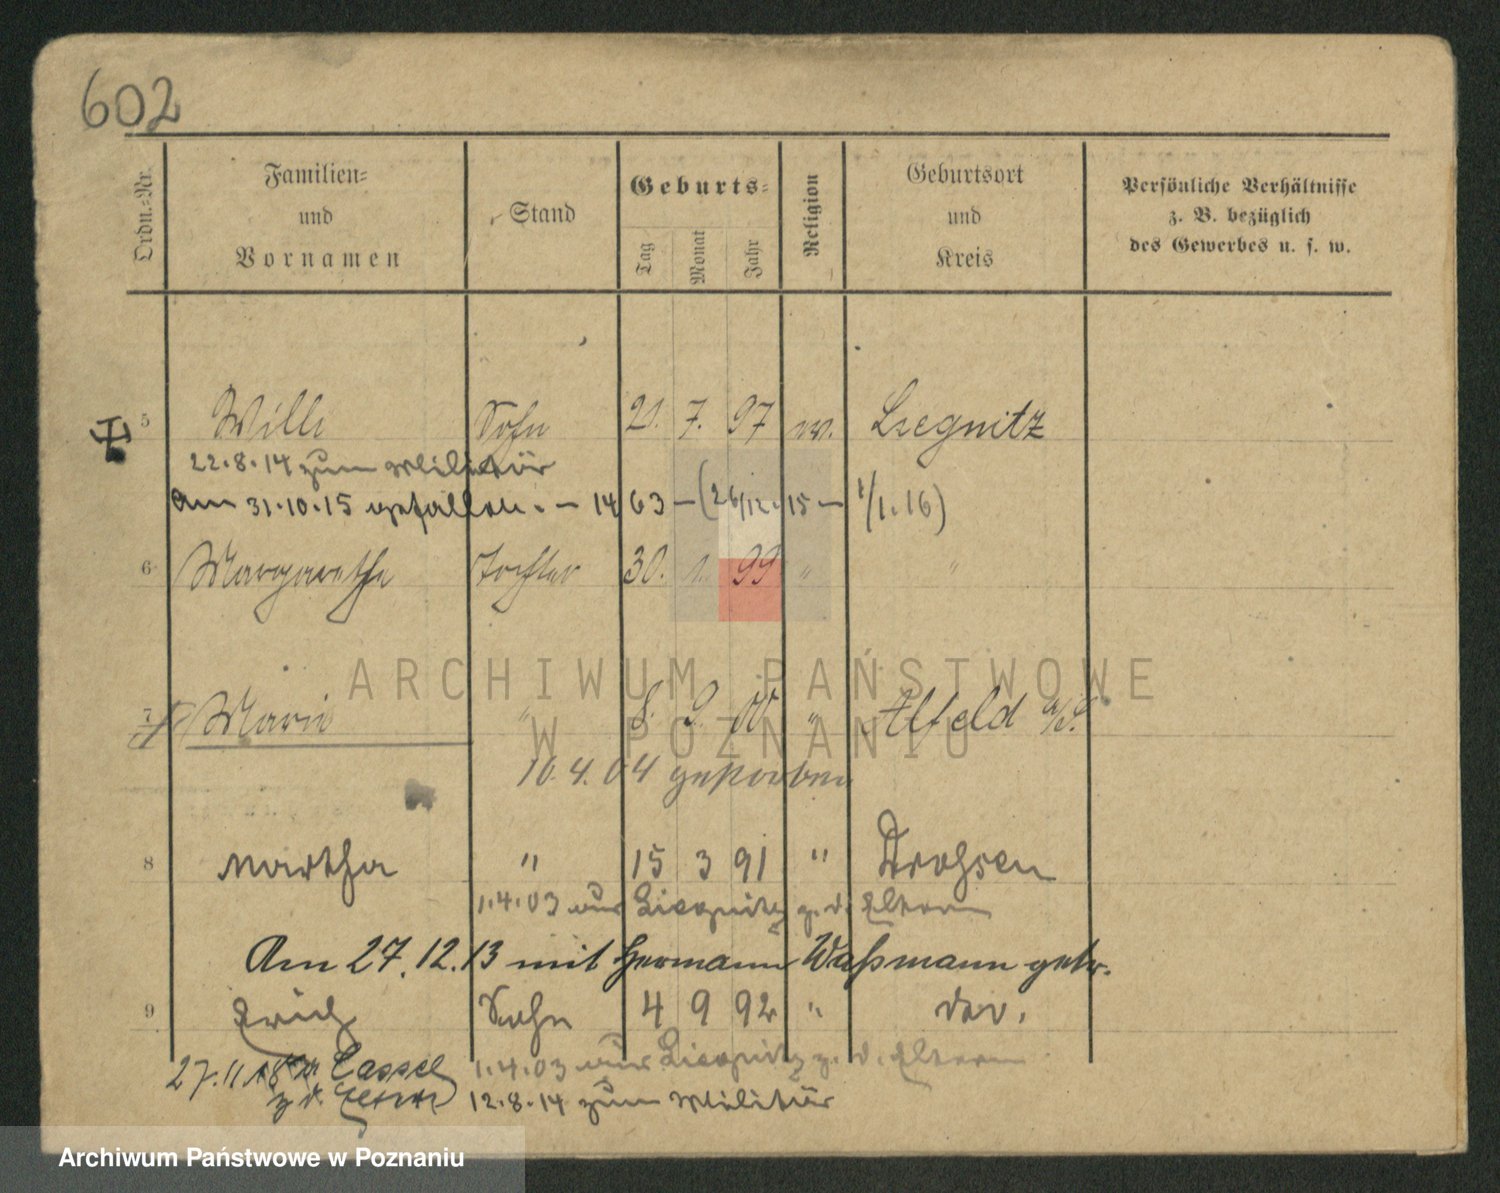 602
Ordn.-Nr.
Familien-
und
Vornamen
Stand
Geburts-
Tag
Monat
Jahr
Religion
Geburtsort
und
Kreis
Persönliche Verhältnisse
z. B. bezüglich
des Gewerbes u. s. w.
5 Willi Sohn 21. 7. 97 Liegnitz
22.8.14 zum Militär
Am 31.10.15 gefallen. – 1463 – (26/12.15 – 1/1.16)
6 Margarethe Tochter 30. 1. 99 " "
7 Marie " 8. 9. 00 " Alfeld a/L.
10.4.04 gestorben
8 Martha " 15 3 91 " Drossen
1.4.03 aus Liegnitz z. d. Eltern
Am 27.12.13 mit Hermann Waßmann getr.
9 Erich Sohn 4 9 92 "
27.11.18 Cassel
z d. Eltern
1.4.03 aus Liegnitz z. d. Eltern
12.8.14 zum Militär
ARCHIWUM PAŃSTWOWE
W POZNANIU
Archiwum Państwowe w Poznaniu